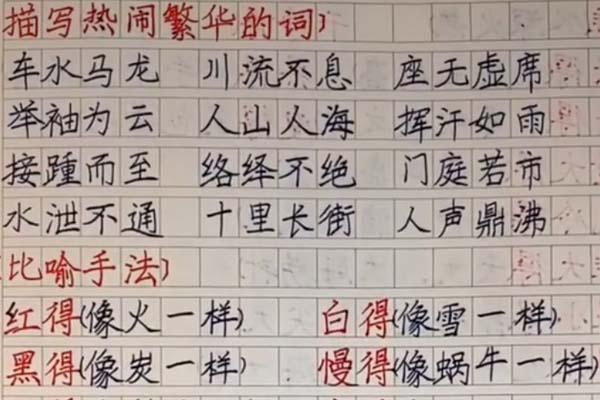 描写热闹繁华的词)
车水马龙 川流不息 座无虚席
举袖为云 人山人海 挥汗如雨
接踵而至 络绎不绝 门庭若市
水泄不通 十里长街 人声鼎沸
比喻手法)
红得(像火一样) 白得(像雪一样)
黑得(像炭一样) 慢得(像蜗牛一样)